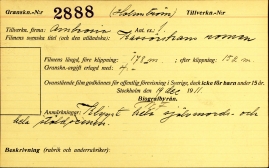 Granskn.-N:r 2888 (Holmström) Tillverkn.-N:r
Tillverkn. firma: Ambrosio Akt. 1.
Filmens svenska titel (och den utländska):
roman
Filmens längd, före klippning: 171 m; efter klippning: 152 m.
Granskn.-avgift erlagd med 4:-
Ovanstående film godkännes för offentlig förevisning i Sverige, dock icke för barn under 15 år.
Stockholm den 19 dec. 1911.
Biografbyrån.
Anmärkningar: hela självmords- och
hela
Beskrivning (rubrik och underrubriker):